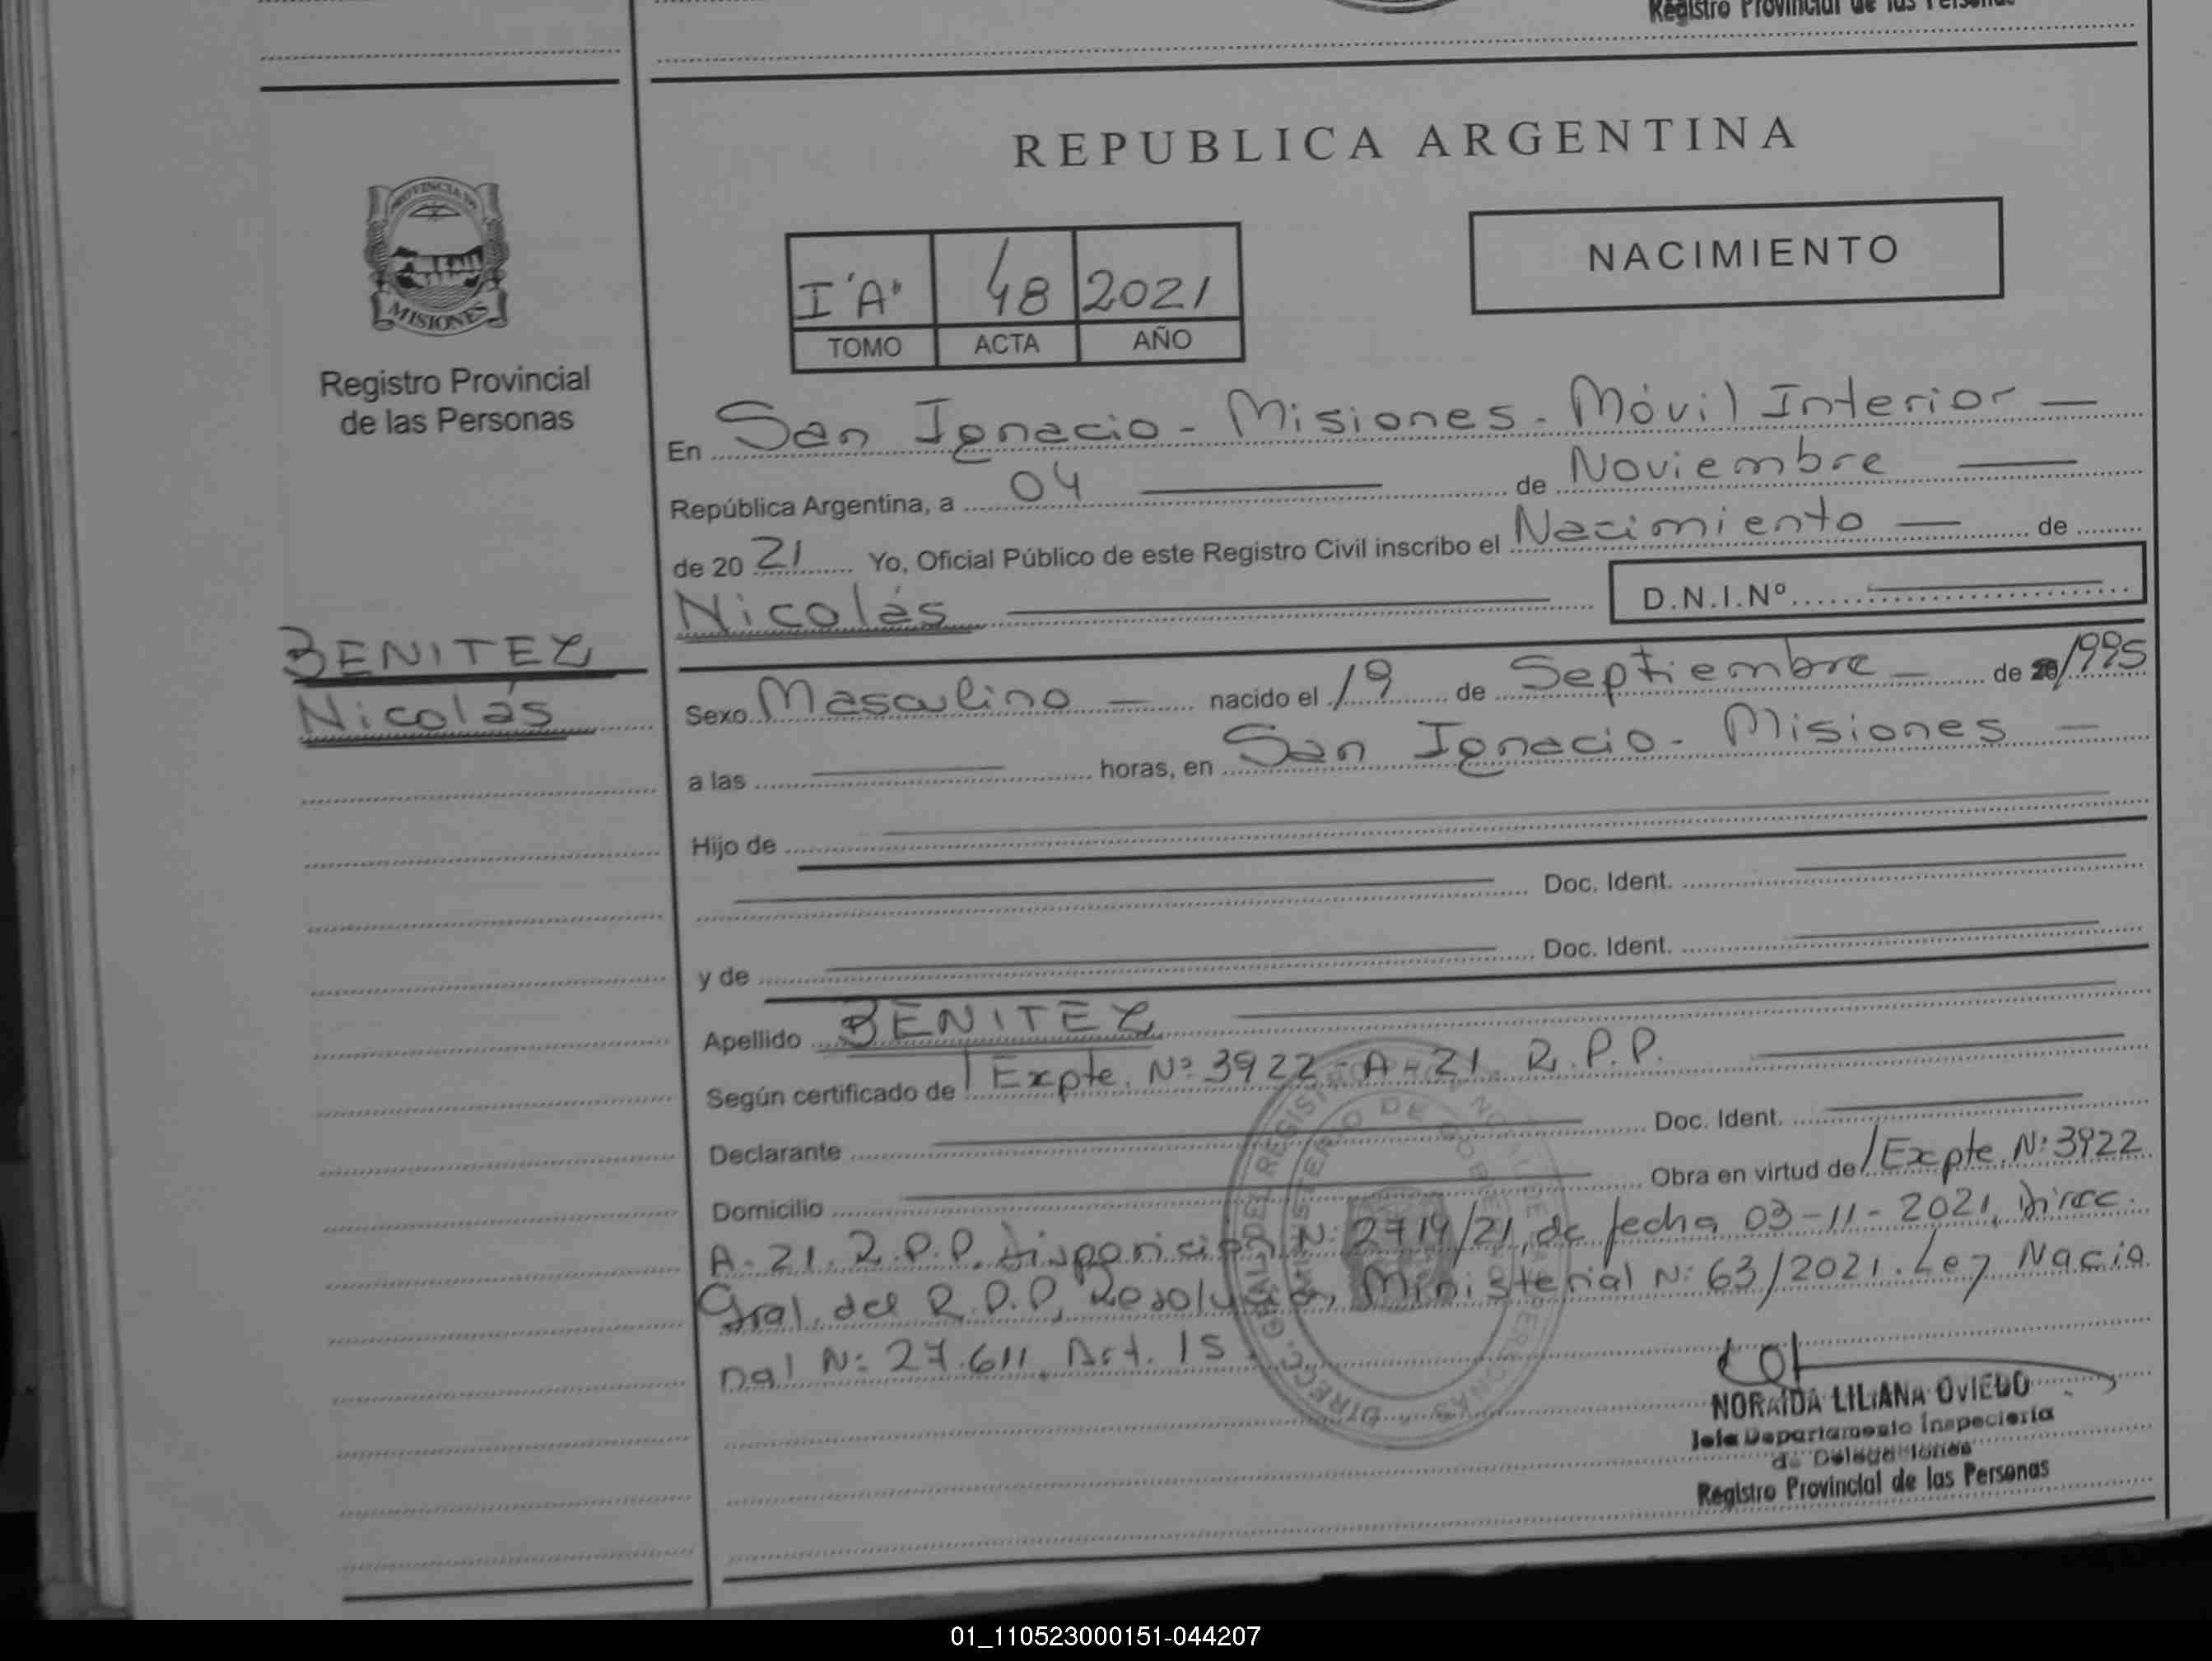 Registro Provincial de las Personas
REPUBLICA ARGENTINA
PROVINCIA DE
MISIONES
Registro Provincial
de las Personas
BENITEZ
Nicolás
I "A" 48 2021
TOMO ACTA AÑO
NACIMIENTO
En San Ignacio - Misiones - Móvil Interior
República Argentina, a 04 de Noviembre
de 20 21 Yo, Oficial Público de este Registro Civil inscribo el Nacimiento de
Nicolás D.N.I.Nº
Sexo Masculino nacido el 19 de Septiembre de 20/1995
a las horas, en San Ignacio - Misiones
Hijo de
Doc. Ident.
y de Doc. Ident.
Apellido BENITEZ
Según certificado de Expte. Nº 3922 - A - 21. R.P.P.
Declarante Doc. Ident.
Domicilio Obra en virtud de Expte. Nº 3922
A-21. R.P.P. Disposición Nº 2719/21, de fecha 03-11-2021, Direc.
Gral. del R.P.P, Resolución Ministerial Nº 63/2021. Ley Nacio
nal Nº 27.611, Art. 15.
NORAIDA LILIANA OVIEDO
Jefa Departamento Inspectoría
de Delegaciones
Registro Provincial de las Personas
01_110523000151-044207